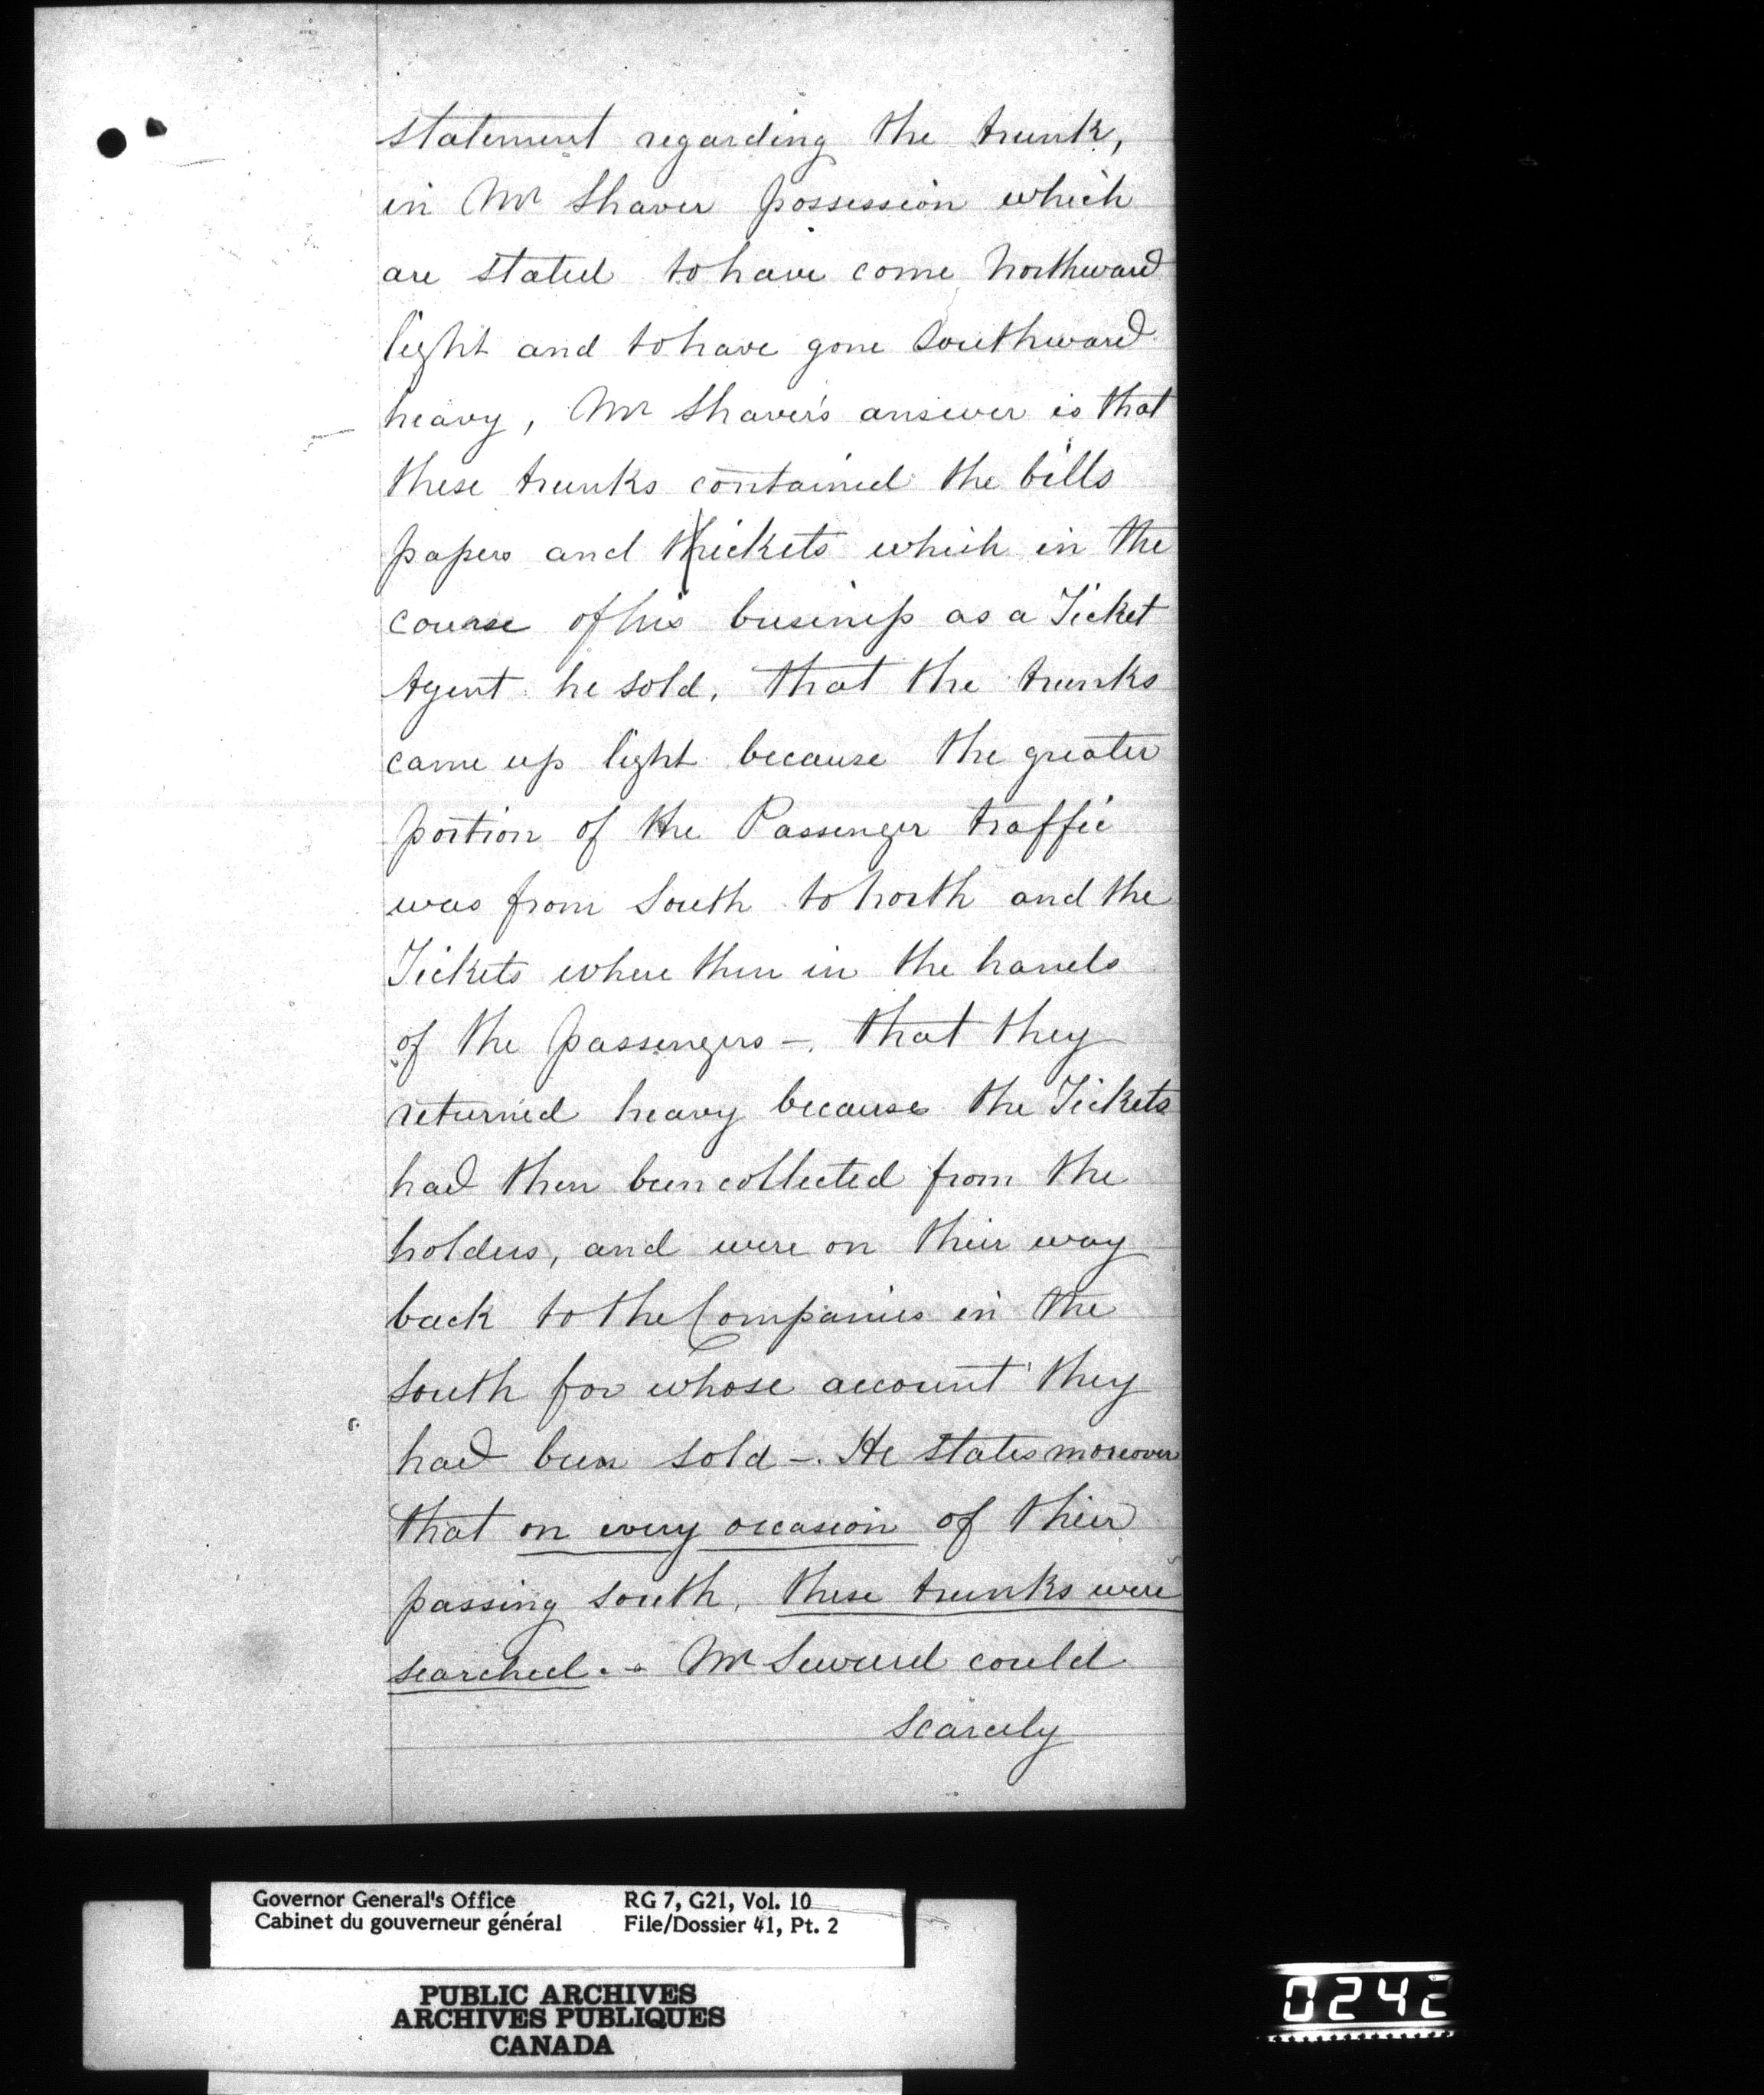 statement regarding the trunk,
in Mr Shaver possession which
are stated to have come Northward
light and to have gone Southward
heavy, Mr Shaver's answer is that
these trunks contained the bills
papers and thickets which in the
course of his business as a Ticket
Agent he sold. That the trunks
came up light because the greater
portion of the Passenger traffic
was from South to North and the
Tickets where then in the hands
of the passengers -. That they
returned heavy because the Tickets
had then been collected from the
holders, and were on their way
back to the Companies in the
South for whose account they
had been sold -. He states moreover
that on every occasion of their
passing south, these trunks were
searched. - Mr Seward could
scarcely
Governor General's Office RG 7, G21, Vol. 10
Cabinet du gouverneur général File/Dossier 41, Pt. 2
PUBLIC ARCHIVES
ARCHIVES PUBLIQUES
CANADA
0242